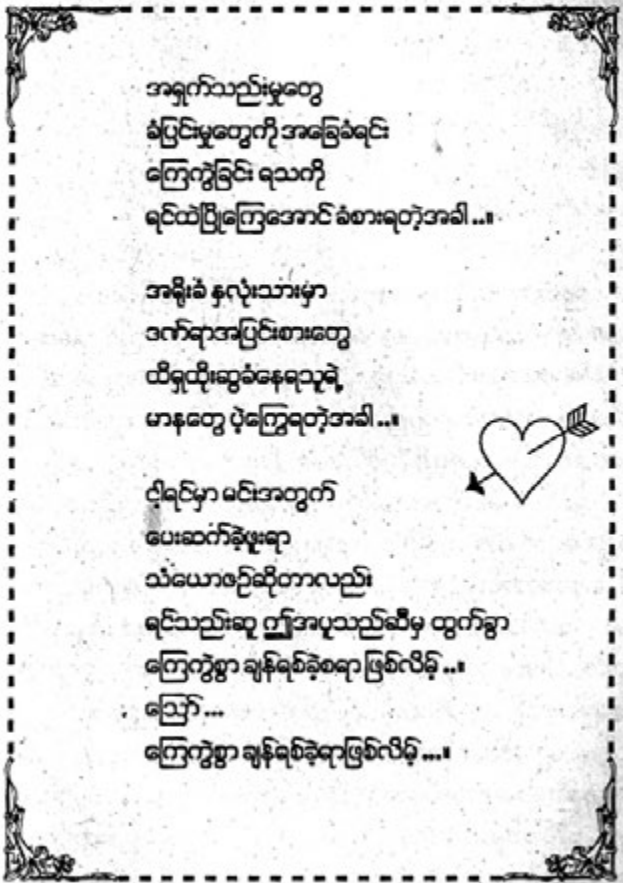 အရှက်သည်းမှုတွေ
ခံပြင်းမှုတွေကို အခြေခံရင်း
ကြေကွဲခြင်း ရသကို
ရင်ထဲပြိုကြေအောင် ခံစားရတဲ့အခါ ...။
အရိုးခံ နှလုံးသားမှာ
ဒဏ်ရာအပြင်းစားတွေ
ထိရှထိုးဆွခံနေရသူရဲ့
မာနတွေ ပွဲကြွေရတဲ့အခါ ...။
ငါ့ရင်မှာ မင်းအတွက်
ပေးဆက်ခဲ့ဖူးရာ
သံယောဇဉ်ဆိုတာလည်း
ရင်သည်းဆူ ဤအပူသည်ဆီမှ ထွက်ခွာ
ကြေကွဲစွာ ချန်ရစ်ခဲ့စရာ ဖြစ်လိမ့် ...။
ဪ ...
ကြေကွဲစွာ ချန်ရစ်ခဲ့ရာဖြစ်လိမ့် ....။